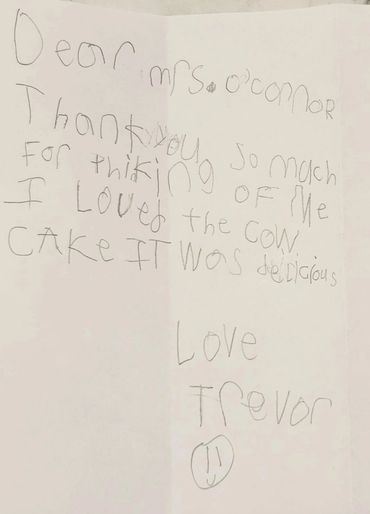 Dear mrs. o'connor
Thank you so much
For thiking OF Me
I Loved the cow
CAKe IT was delicious
Love
Trevor